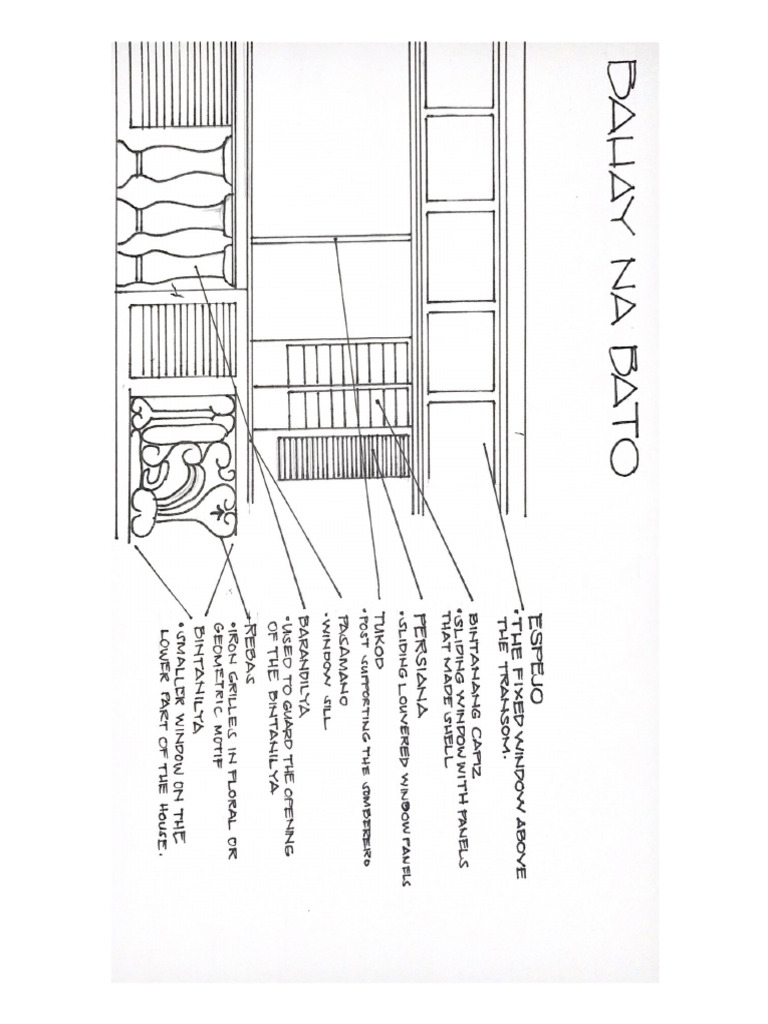 BAHAY NA BATO
ESPEJO
•THE FIXED WINDOW ABOVE
THE TRANSOM.
BINTANANG CAPIZ
•SLIDING WINDOW WITH PANELS
THAT MADE SHELL
PERSIANA
•SLIDING LOUVERED WINDOW PANELS
TUKOD
•POST SUPPORTING THE SOMBERERO
PASAMANO
•WINDOW SILL
BARANDILYA
•USED TO GUARD THE OPENING
OF THE BINTANILYA
REBAS
•IRON GRILLES IN FLORAL OR
GEOMETRIC MOTIF
BINTANILYA
•SMALLER WINDOW ON THE
LOWER PART OF THE HOUSE.